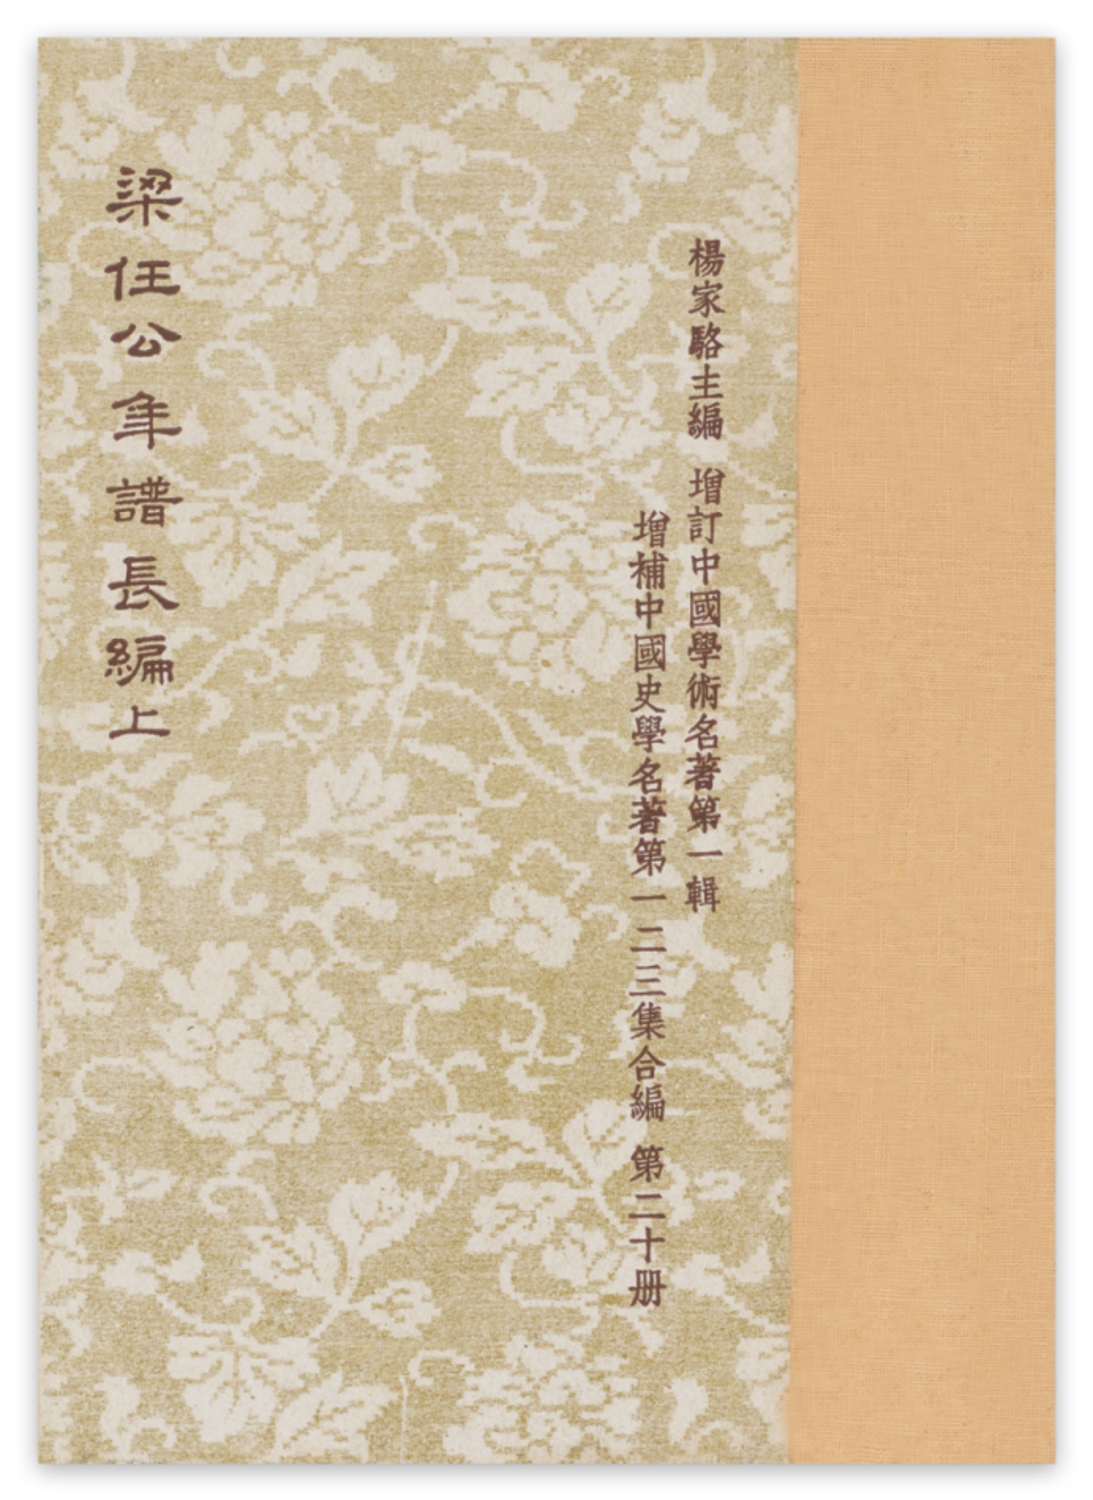 楊家駱主編 增訂中國學術名著第一輯
增補中國史學名著第一二三集合編 第二十册
梁任公年譜長編上